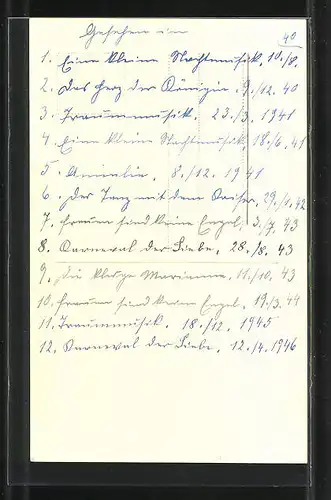 Gesehen im
40
1. Eine kleine Nachtmusik. 10./8.
2. Das Herz der Königin. 9./12. 40
3. Traummusik. 23./3. 1941
4. Eine kleine Nachtmusik, 18./6. 41
5. Annelie. 8./12. 1941
6. Der Tanz mit dem Kaiser. 29./1. 42
7. Frauen sind keine Engel. 3./7. 43
8. Karneval der Liebe. 28./8. 43
9. Die kluge Marianne. 11./10. 43
10. Frauen sind keine Engel. 19./3. 44
11. Traummusik. 18./12. 1945
12. Karneval der Liebe. 12./4. 1946